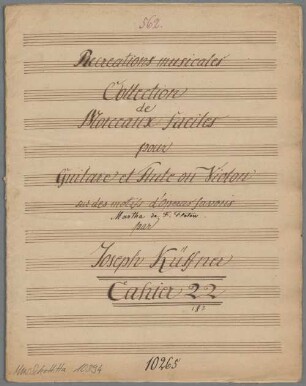 562.
Recreations musicales
Collection
de
Morceaux faciles
pour
Guitare et Flute ou Violon
sur des motifs d'operas favoris
Martha de F. Flotow
par
Joseph Küffner
Cahier 22
10265